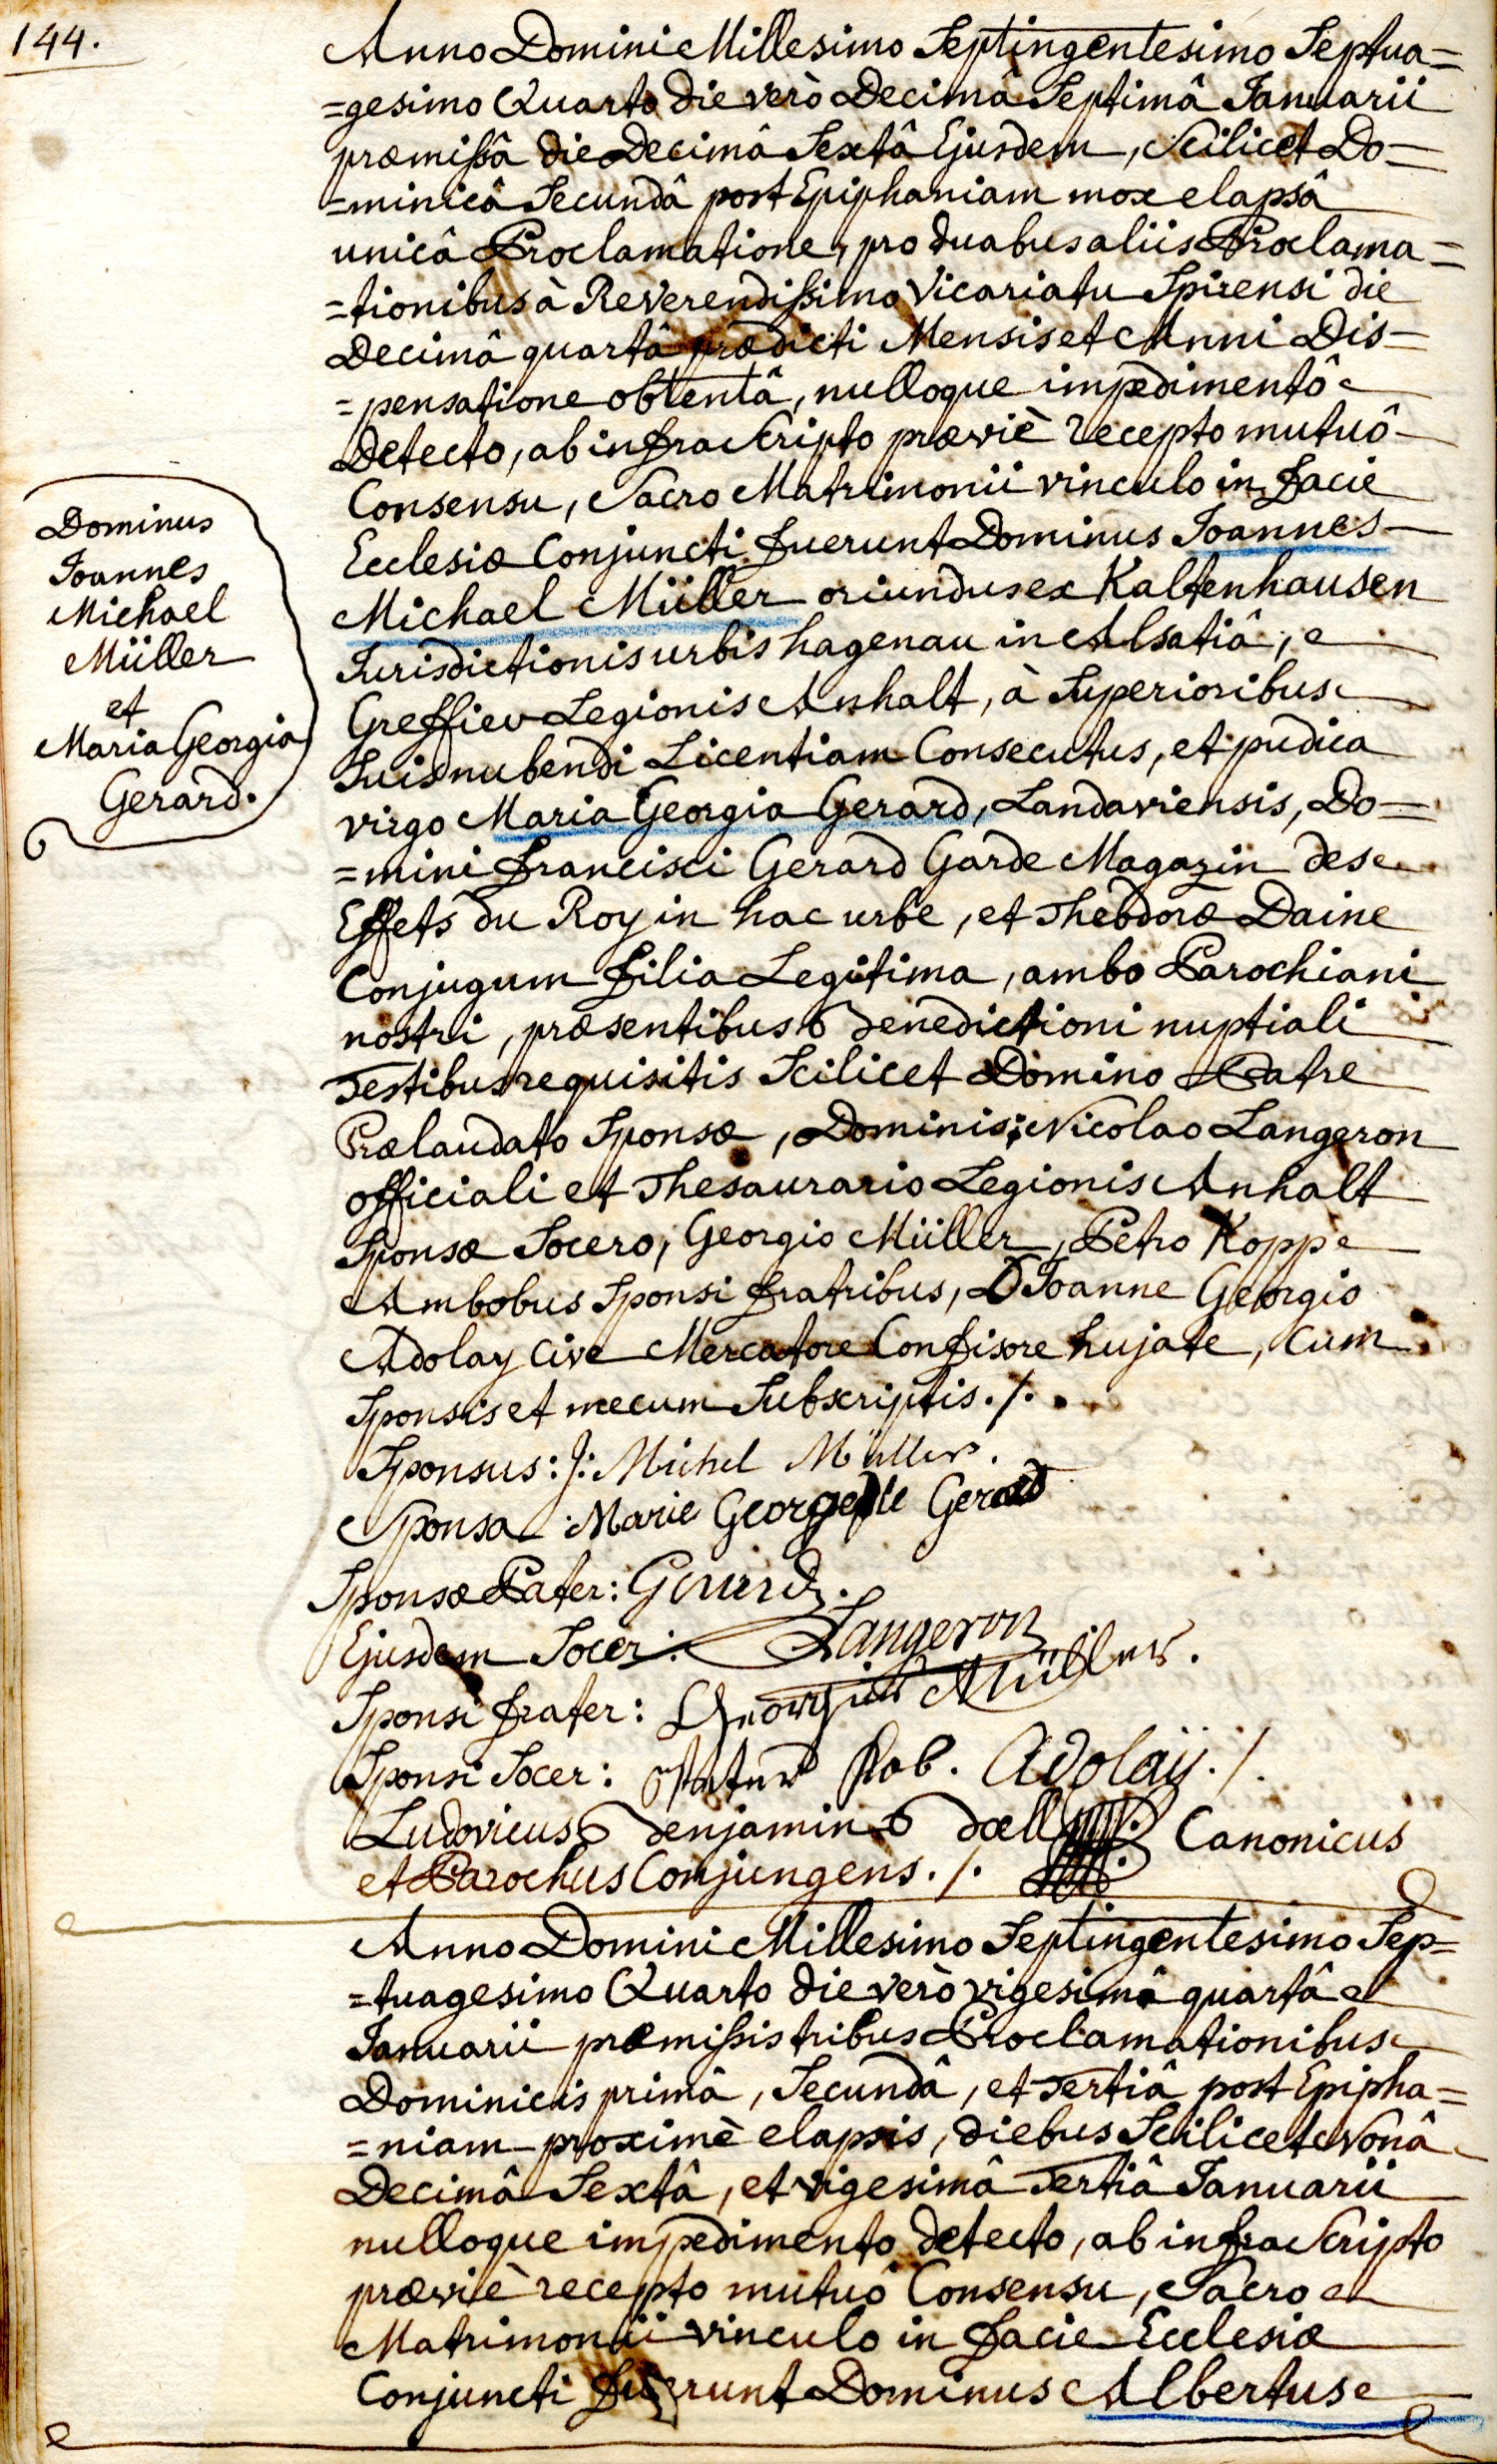 144.
Anno Domini Millesimo Septingentesimo Septua=
=gesimo Quarto die verò Decimâ Septimâ Januarii
præmissâ die Decimâ Sextâ Ejusdem, Scilicet Do=
=minicâ Secundâ post Epiphaniam mox elapsâ
unicâ Proclamatione, pro duabus aliis Proclama=
=tionibus à Reverendissimo Vicariatu Spirensi die
Decimâ quartâ prædicti Mensis et Anni Dis=
=pensatione obtentâ, nulloque impedimentô
Detecto, ab infra Scripto præviè recepto mutuô
Consensu, Sacro Matrimonii vinculo in facie
Ecclesiæ Conjuncti fuerunt Dominus Joannes
Michael Müller oriundus ex Kaltenhausen
Jurisdictionis urbis hagenau in Alsatiâ,
Greffier Legionis Anhalt, à Superioribus
Suis nubendi Licentiam Consecutus, et pudica
virgo Maria Georgia Gerard, Landaviensis, Do=
=mini francisci Gerard Garde Magazin des
Effets du Roy in hac urbe, et Theodoræ Daine
Conjugum filia Legitima, ambo Parochiani
nostri, præsentibus Benedictioni nuptiali
Testibus requisitis Scilicet Domino Patre
Prælaudato Sponsæ, Dominis: Nicolao Langeron
officiali et Thesaurario Legionis Anhalt
Sponsæ Socero, Georgio Müller, Petro Kopp
Ambobus Sponsi fratribus, D Joanne Georgio
Adolay Cive Mercatore Confisore hujate, Cum
Sponsis et mecum Subscriptis. /.
Dominus
Joannes
Michael
Müller
et
Maria Georgia
Gerard.
Sponsus: J: Michel Müller.
Sponsa Marie Georgette Gerard
Sponsæ Pater: Gerard.
Ejusdem Socer: Langeron
Sponsi frater: Georgius Müller.
Sponsi Socer: Adolaÿ. /.
Ludovicus Benjamin Doell Canonicus
et Parochus Conjungens. /.
Anno Domini Millesimo Septingentesimo Sep=
=tuagesimo Quarto die verò vigesimâ quartâ
Januarii præmissis tribus Proclamationibus
Dominicis primâ, Secundâ, et Tertiâ post Epipha=
=niam proximè elapsis, diebus Scilicet Nonâ
Decimâ Sextâ, et vigesimâ Tertiâ Januarii
nulloque impedimento detecto, ab infra Scripto
præviè recepto mutuô Consensu, Sacro
Matrimonii vinculo in facie Ecclesiæ
Conjuncti fuerunt Dominus Albertus